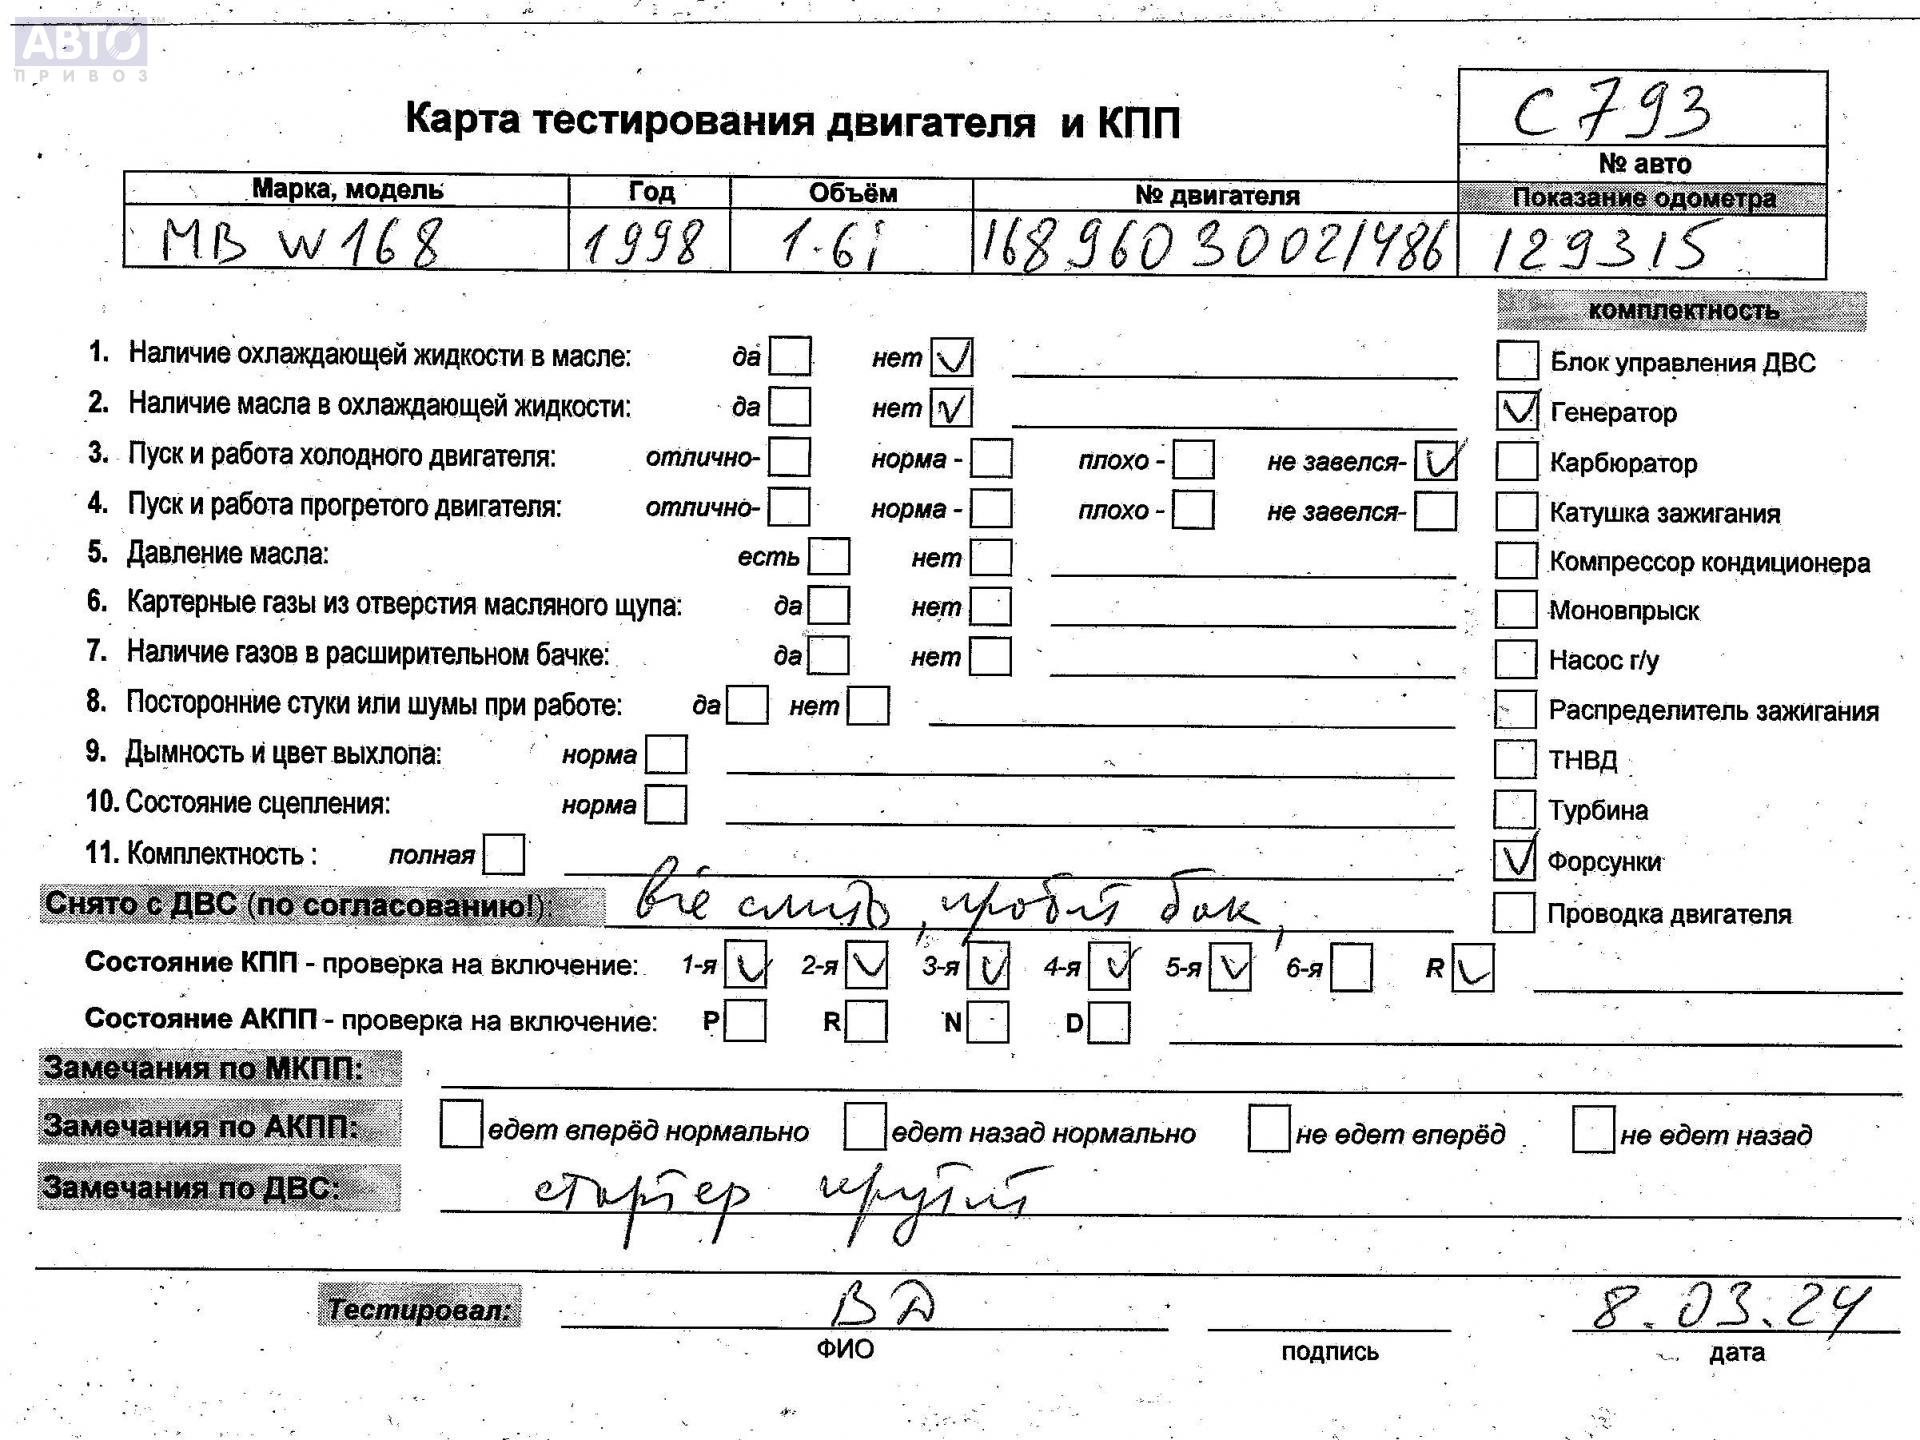 АВТО
ПРИВОЗ
С 793
Карта тестирования двигателя и КПП
№ авто
Марка, модель Год Объём № двигателя Показание одометра
MB W168 1998 1.6i 168 960 30021486 129315
комплектность
1. Наличие охлаждающей жидкости в масле: да нет Блок управления ДВС
2. Наличие масла в охлаждающей жидкости: да нет Генератор
3. Пуск и работа холодного двигателя: отлично- норма - плохо - не завелся- Карбюратор
4. Пуск и работа прогретого двигателя: отлично- норма - плохо - не завелся- Катушка зажигания
5. Давление масла: есть нет Компрессор кондиционера
6. Картерные газы из отверстия масляного щупа: да нет Моновпрыск
7. Наличие газов в расширительном бачке: да нет Насос г/у
8. Посторонние стуки или шумы при работе: да нет Распределитель зажигания
9. Дымность и цвет выхлопа: норма ТНВД
10. Состояние сцепления: норма Турбина
11. Комплектность : полная Форсунки
Снято с ДВС (по согласованию!): бак, Проводка двигателя
Состояние КПП - проверка на включение: 1-я 2-я 3-я 4-я 5-я 6-я R
Состояние АКПП - проверка на включение: P R N D
Замечания по МКПП:
Замечания по АКПП: едет вперёд нормально едет назад нормально не едет вперёд не едет назад
Замечания по ДВС: стартер крутит
Тестировал: ВД 8.03.24
ФИО подпись дата